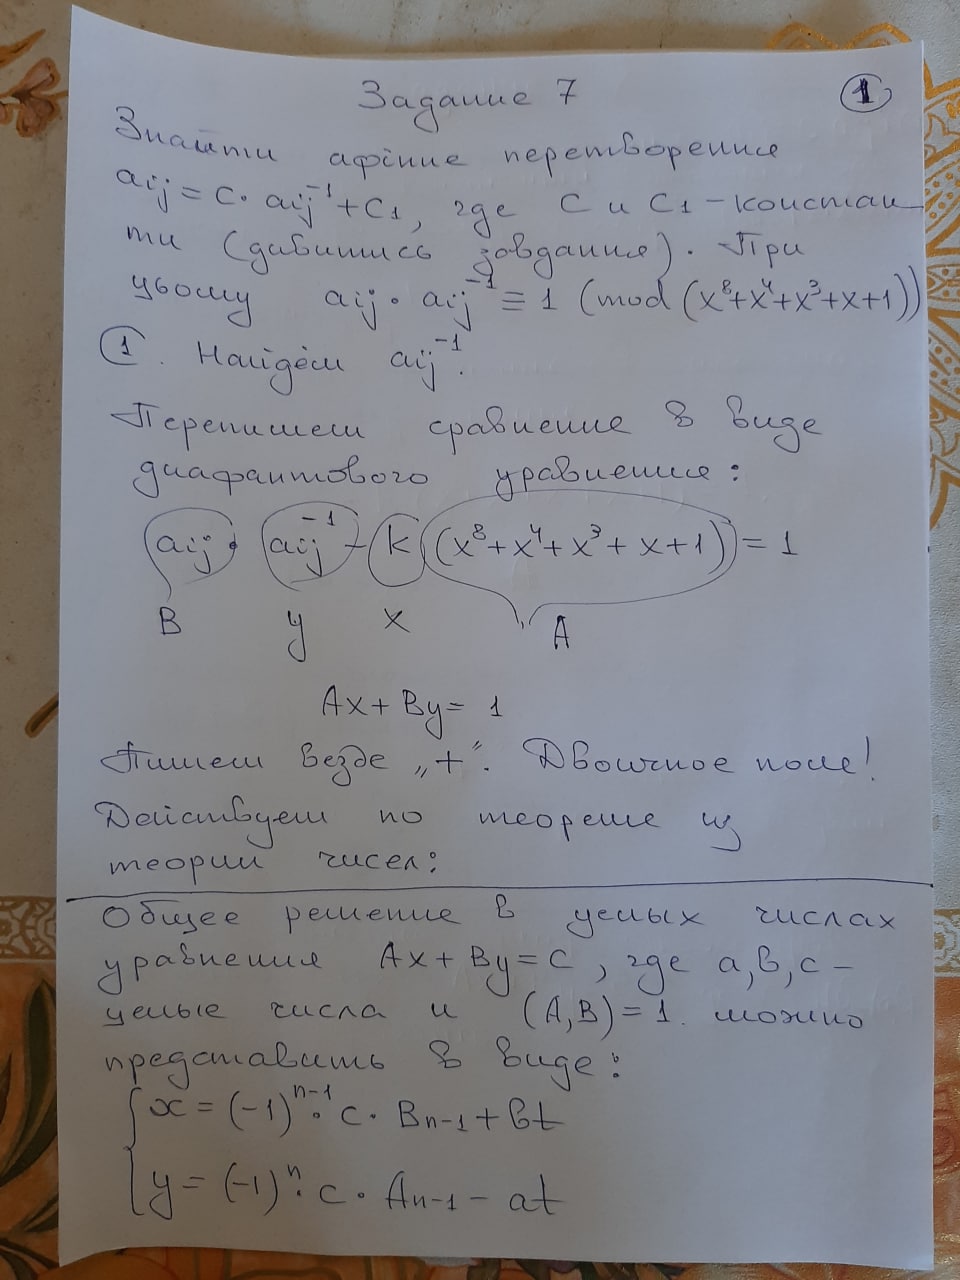 Задание 7
1
Знайти афінне перетворення
aij = C · aij⁻¹ + C1, где C и C1 – констан
ти (дивитись завдання). При
цьому aij · aij⁻¹ ≡ 1 (mod (x⁸+x⁴+x³+x+1))
1. Найдём aij⁻¹.
Перепишем сравнение в виде
диафантового уравнения:
aij · aij⁻¹ – k (x⁸+x⁴+x³+x+1) = 1
B y x A
Ax + By = 1
Пишем везде „+“. Двоичное поле!
Действуем по теореме из
теории чисел:
Общее решение в целых числах
уравнения Ax + By = C, где a, b, c –
целые числа и (A, B) = 1. можно
представить в виде:
x = (-1)ⁿ⁻¹ · c · Bn-1 + bt
y = (-1)ⁿ · c · An-1 – at